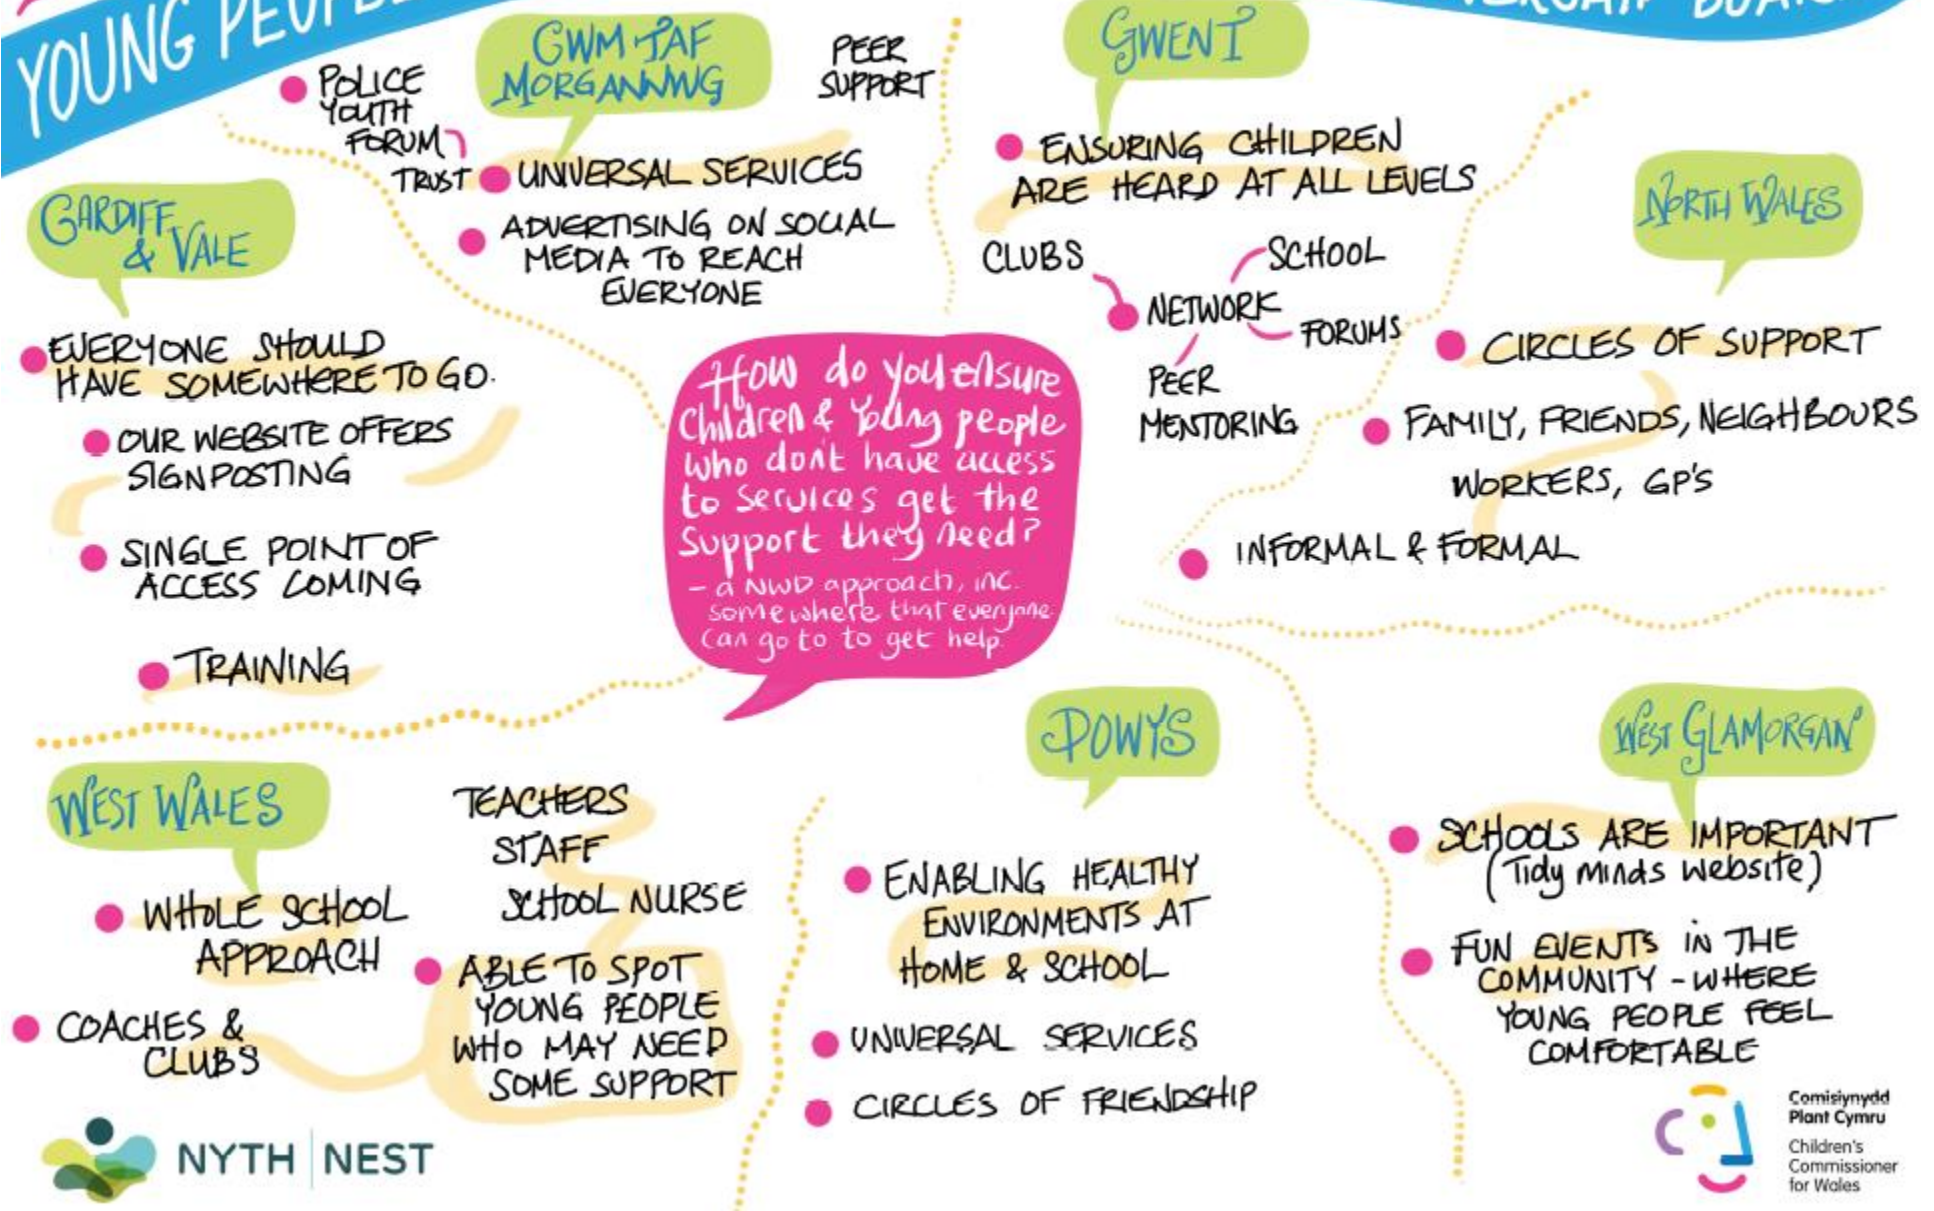 YOUNG PEOPLE
CWM TAF
MORGANNWG
POLICE
YOUTH
FORUM
TRUST
PEER
SUPPORT
UNIVERSAL SERVICES
ADVERTISING ON SOCIAL
MEDIA TO REACH
EVERYONE
GWENT
ENSURING CHILDREN
ARE HEARD AT ALL LEVELS
CLUBS
NETWORK
SCHOOL
FORUMS
PEER
MENTORING
NORTH WALES
CIRCLES OF SUPPORT
FAMILY, FRIENDS, NEIGHBOURS
WORKERS, GP'S
INFORMAL & FORMAL
CARDIFF
& VALE
EVERYONE SHOULD
HAVE SOMEWHERE TO GO.
OUR WEBSITE OFFERS
SIGNPOSTING
SINGLE POINT OF
ACCESS COMING
TRAINING
How do you ensure
Children & Young people
who don't have access
to services get the
Support they need?
- a NWD approach, inc.
somewhere that everyone
can go to to get help.
WEST WALES
WHOLE SCHOOL
APPROACH
COACHES &
CLUBS
TEACHERS
STAFF
SCHOOL NURSE
ABLE TO SPOT
YOUNG PEOPLE
WHO MAY NEED
SOME SUPPORT
POWYS
ENABLING HEALTHY
ENVIRONMENTS AT
HOME & SCHOOL
UNIVERSAL SERVICES
CIRCLES OF FRIENDSHIP
WEST GLAMORGAN
SCHOOLS ARE IMPORTANT
(Tidy Minds website)
FUN EVENTS IN THE
COMMUNITY - WHERE
YOUNG PEOPLE FEEL
COMFORTABLE
NYTH | NEST
Comisiynydd
Plant Cymru
Children's
Commissioner
for Wales